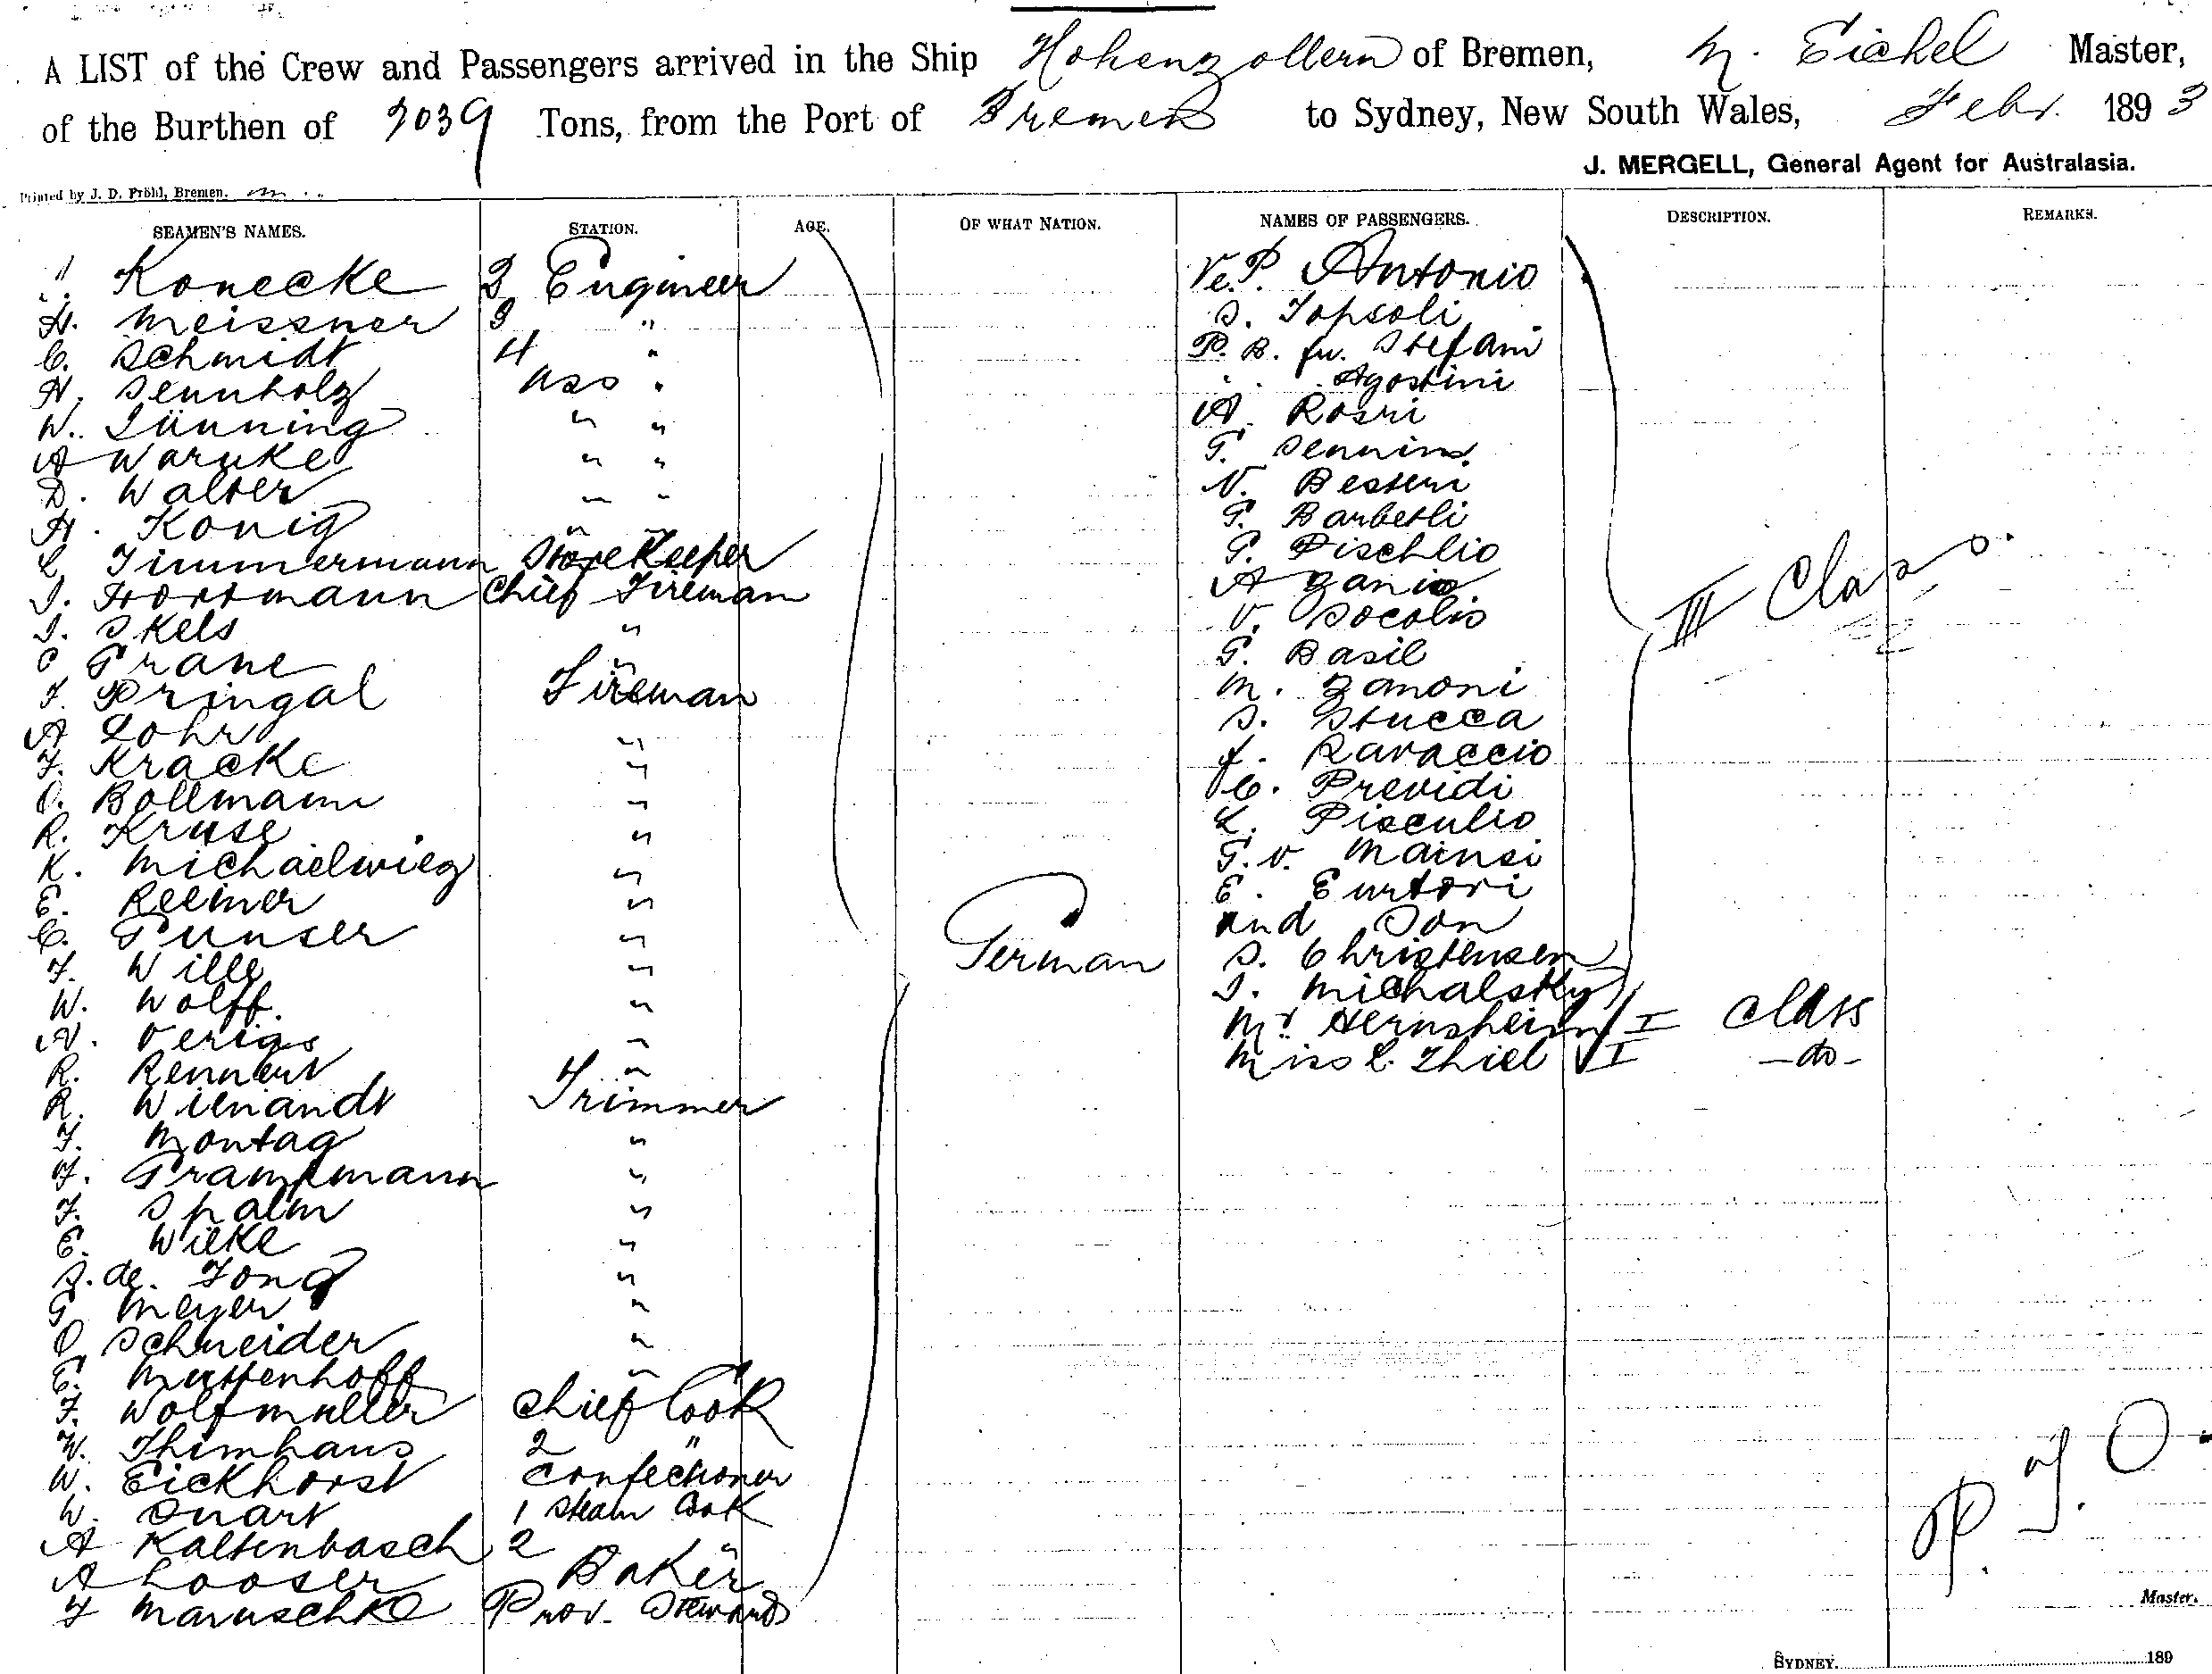 A LIST of the Crew and Passengers arrived in the Ship Hohenzollern of Bremen, H. Eichel Master,
of the Burthen of 2039 Tons, from the Port of Bremen to Sydney, New South Wales, Febr. 1893
J. MERGELL, General Agent for Australasia.
Printed by J. D. Pröhl, Bremen.
SEAMEN'S NAMES. STATION. AGE. OF WHAT NATION. NAMES OF PASSENGERS. DESCRIPTION. REMARKS.
Konecke 2 Engineer Ve. P. Antonio
H. Meissner 3 " S. Topsoli
C. Schmidt 4 " P. B. fu. Stefani
H. Sennholz Ass " Agostini
W. Lünning " " A. Rosri
A Warnke " " G. Sennins
D. Walter " " N. Besteni
H. König " G. Barbetli
C. Timmermann Storekeeper G. Pischlio
J. Hortmann Chief Fireman A Zanio
J. Skels " V. Socolis
C Grane " G. Basil
F. Pringal Fireman M. Zanoni
A Lohr " S. Stucca
F. Kracke " f. Ravaccio
O. Bollmann " C. Previdi
R. Kruse " L. Pisculio
K. Michaelwieg " G. v. Mainsi
E. Reemer " E. Eurtori
C. Gunser " and Son
F. Wille " German S. Christensen
W. Wolff. " J. Michalsky III Class.
N. Verigs " Mr. Hernsheim I Class
R. Rennert " Miss L. Thiel I -do-
R. Wienandt Trimmer
F. Montag "
H. Grampmann "
F. Spalm "
E. Wieke "
S. de. Jong "
G Meyer "
O Schneider "
E. Mussenhoff "
F. Wolfmuller Chief Cook
W. Thimhans 2 "
W. Eickhorst Confectioner
W. Quart 1 Steam Cook
A Kaltenbasch 2 "
A Looser Baker
F Maruschke Prov. Steward
P. T. O.
Master.
SYDNEY, 189